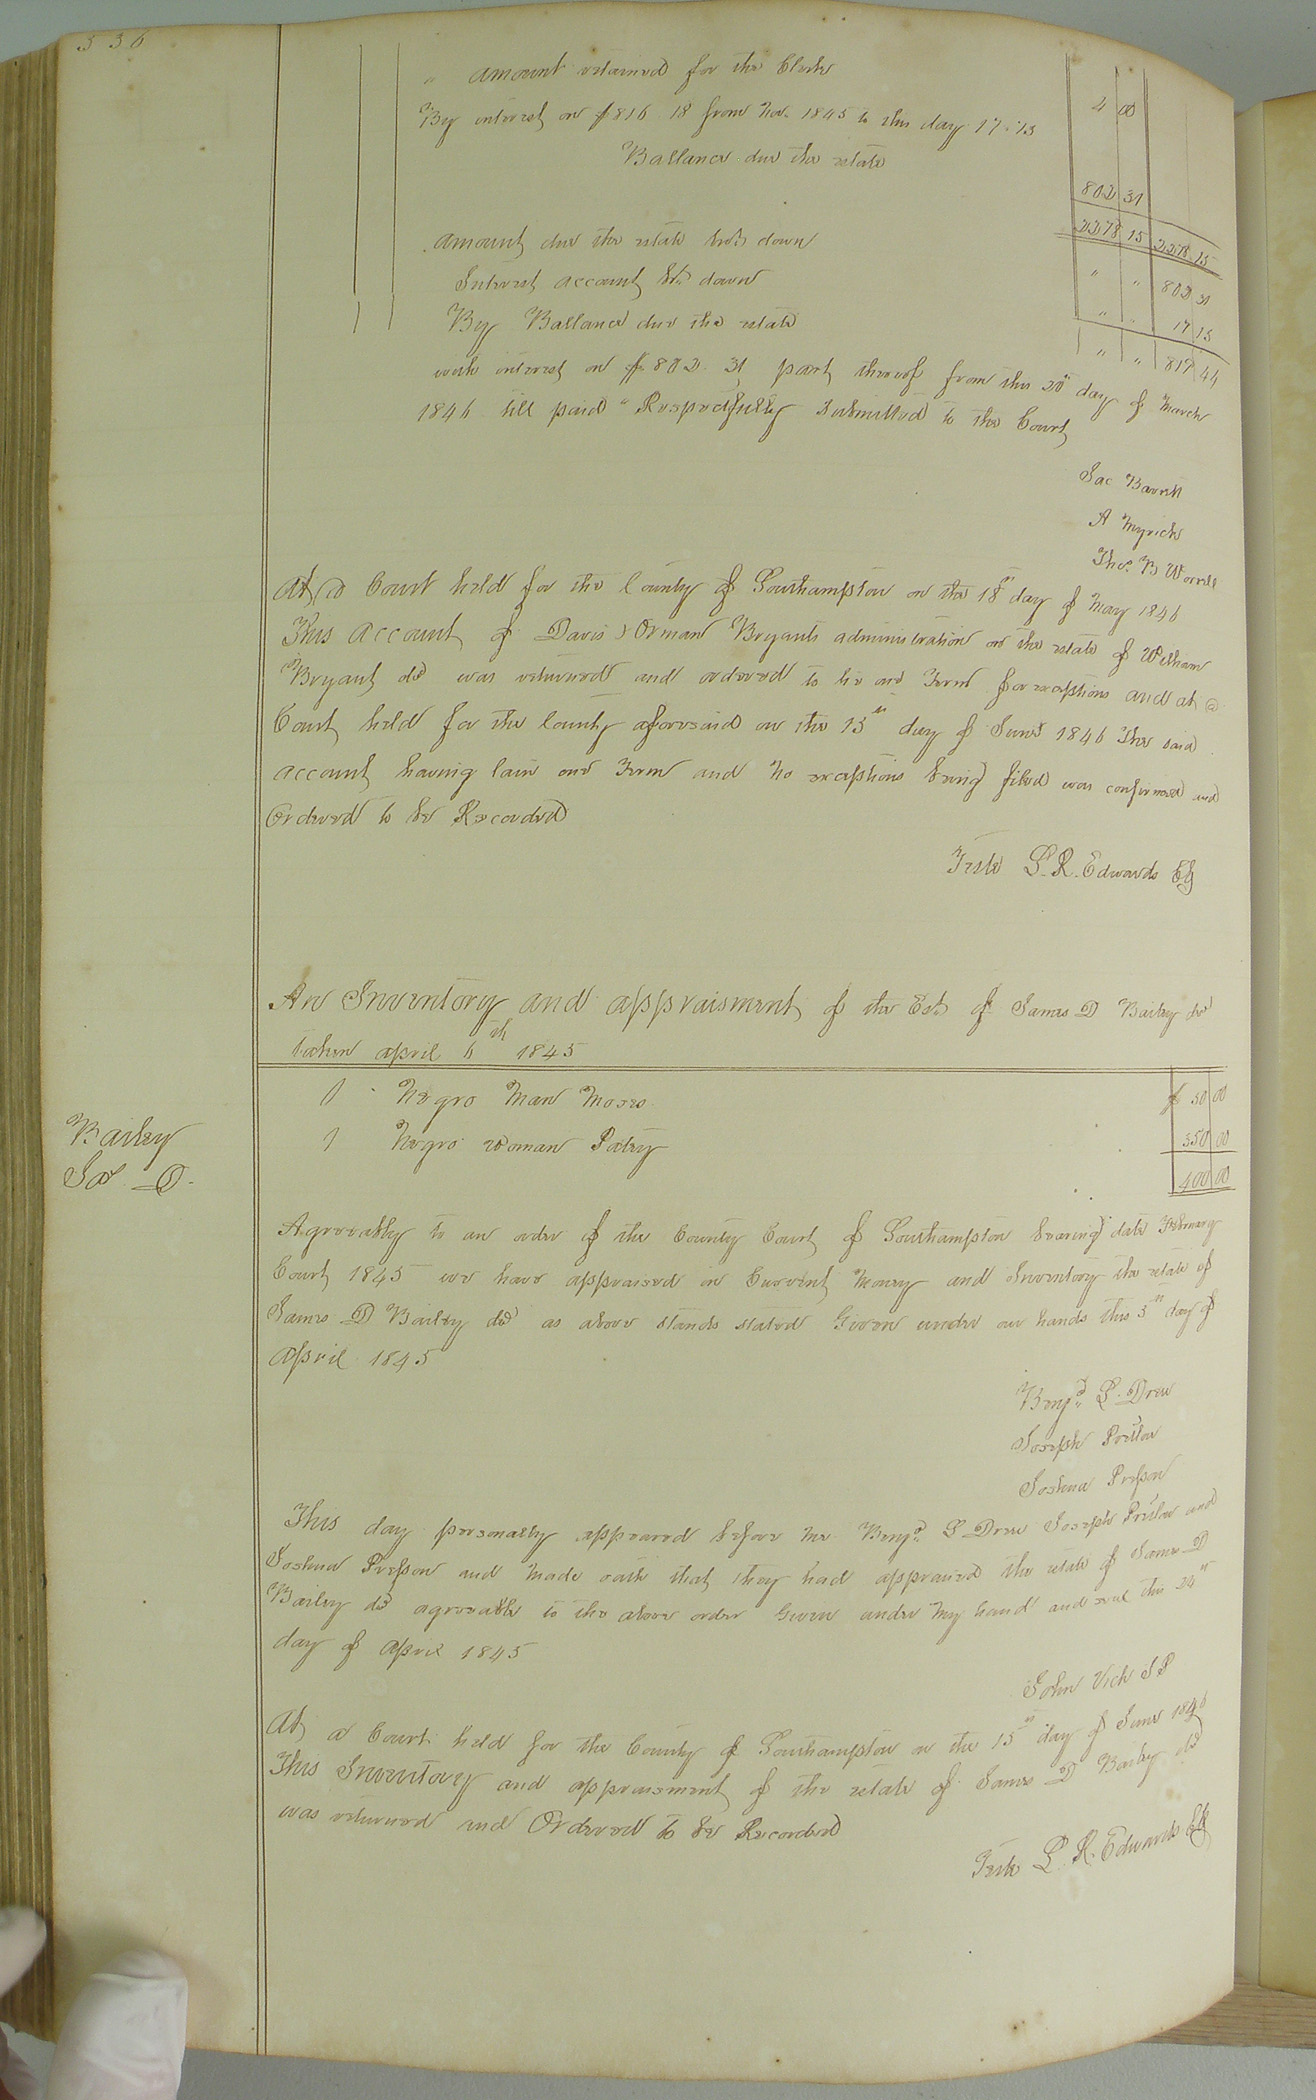 336
" amount retained for the Clerk 4 00
By interest on $816.18 from Nov. 1845 to this day 17.13
Ballance due the estate 802 31
2278 15 2278 15
amount due the estate brt. down " " 802 31
Interest account bt. down " " 17 13
By Ballance due the estate " " 819 44
with interest on $802.31 part thereof from this 20th day of March
1846 till paid " Respectfully Submitted to the Court
Jac Barrett
A Myrick
Thos. B Worrell
At a Court held for the County of Southampton on the 18th day of May 1846
This account of Davis & Orman Bryants administration on the estate of
Bryant decd was returned and ordered to lie one Term for exceptions and at a
Court held for the County aforesaid on the 15th day of June 1846 The said
account having lain one Term and no exceptions being filed was confirmed and
Ordered to be Recorded
Teste L. R. Edwards Clk
An Inventory and appraisment of the Est. of James D Bailey decd
taken april 5th 1845
Bailey
Jas D.
1 Negro Man Moses $ 50 00
1 Negro woman Patsy 350 00
400 00
Agreeably to an order of the County Court of Southampton bearing date February
Court 1845 we have appraised in Current Money and Inventory the estate of
James D Bailey decd as above stands stated Given under our hands this 5th day of
April 1845
Benjn. L. Drew
Joseph Pretlow
Joshua Presson
This day personally appeared before me Benjn. L Drew Joseph Pretlow and
Joshua Presson and made oath that they had appraised the estate of James D
Bailey decd agreeable to the above order Given under my hand and seal this 24th
day of April 1845
John Vick J P
At a Court held for the County of Southampton on the 15th day of June 1846
This Inventory and appraisment of the estate of James D Bailey decd
was returned and Ordered to be Recorded
Teste L. R. Edwards Clk